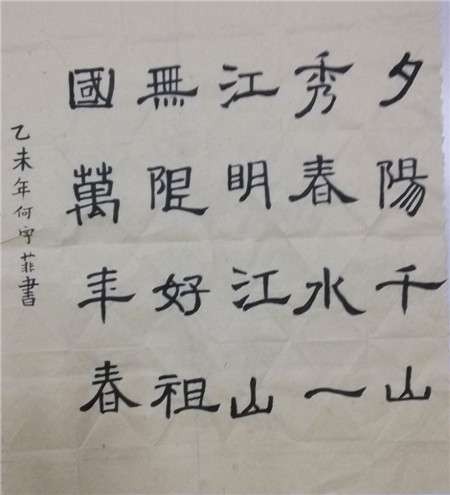 夕陽千山
秀春水一
江明江山
無限好祖
國萬年春
乙未年何宇菲書